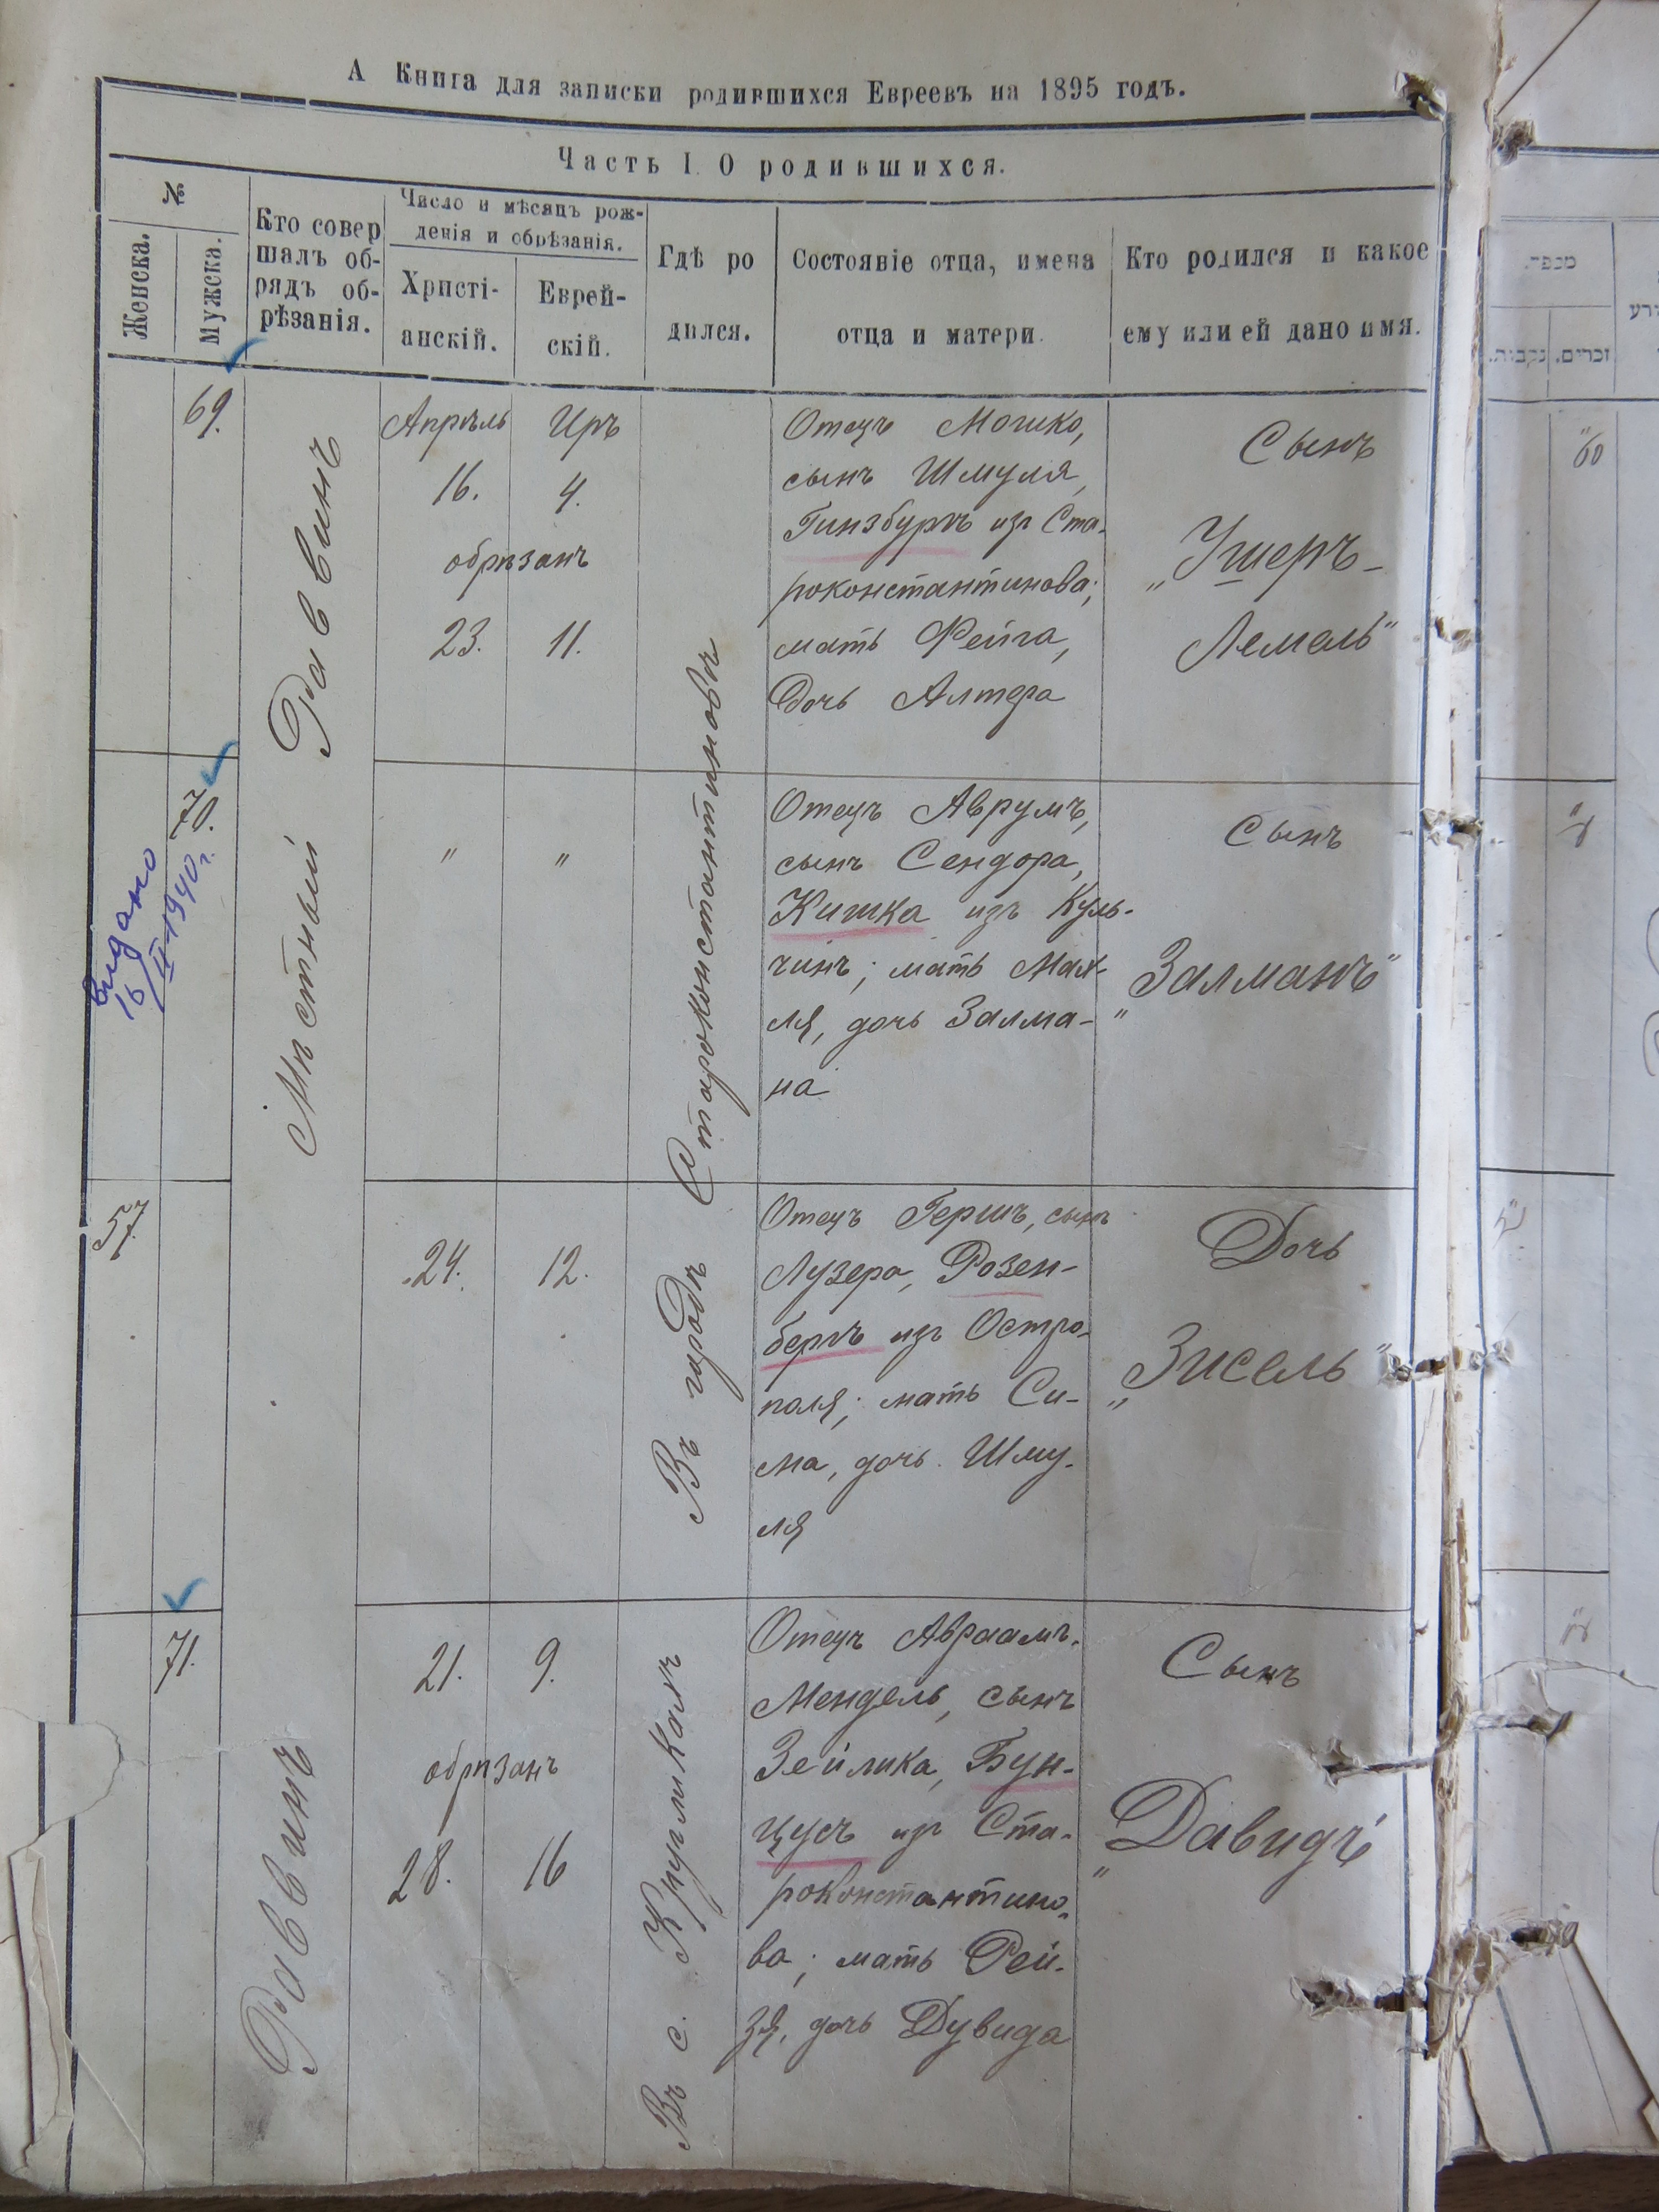 А Книга для записки родившихся Евреевъ на 1895 годъ.
Часть I. О родившихся.
№
Женска.
Мужеска.
Кто совер
шалъ об-
рядъ об-
рѣзанія.
Число и мѣсяцъ рож-
денія и обрѣзанія.
Христі-
анскій.
Еврей-
скій.
Гдѣ ро
дился.
Состояніе отца, имена
отца и матери.
Кто родился и какое
ему или ей дано имя.
69.
Мѣстный Раввинъ
Апрѣль Иръ
16. 4.
обрѣзанъ
23. 11.
Въ городѣ Староконстантиновѣ
Отецъ Мошко,
сынъ Шмуля,
Гинзбургъ изъ Ста-
роконстантинова;
мать Фейга,
дочь Алтера
Сынъ
„Ушеръ-
Лемель"
70.
видано
16/II-1940 г.
" "
Отецъ Аврумъ,
сынъ Сендора,
Кишка изъ Куль-
чинъ; мать Мал-
ля, дочь Залма-
на
Сынъ
„Залманъ"
57.
24. 12.
Отецъ Гершъ, сынъ
Лузера, Розен-
бергъ изъ Остро-
поля; мать Си-
ма, дочь Шму-
ля
Дочь
„Зисель"
71.
Раввинъ
21. 9.
обрѣзанъ
28. 16
Въ с.
Отецъ Авраамъ-
Мендель, сынъ
Зейлика, Бун-
цусъ изъ Ста-
роконстантино-
ва; мать Рей-
зя, дочь Дувида
Сынъ
„Давидъ"
מספר.
זכרים. נקבות.